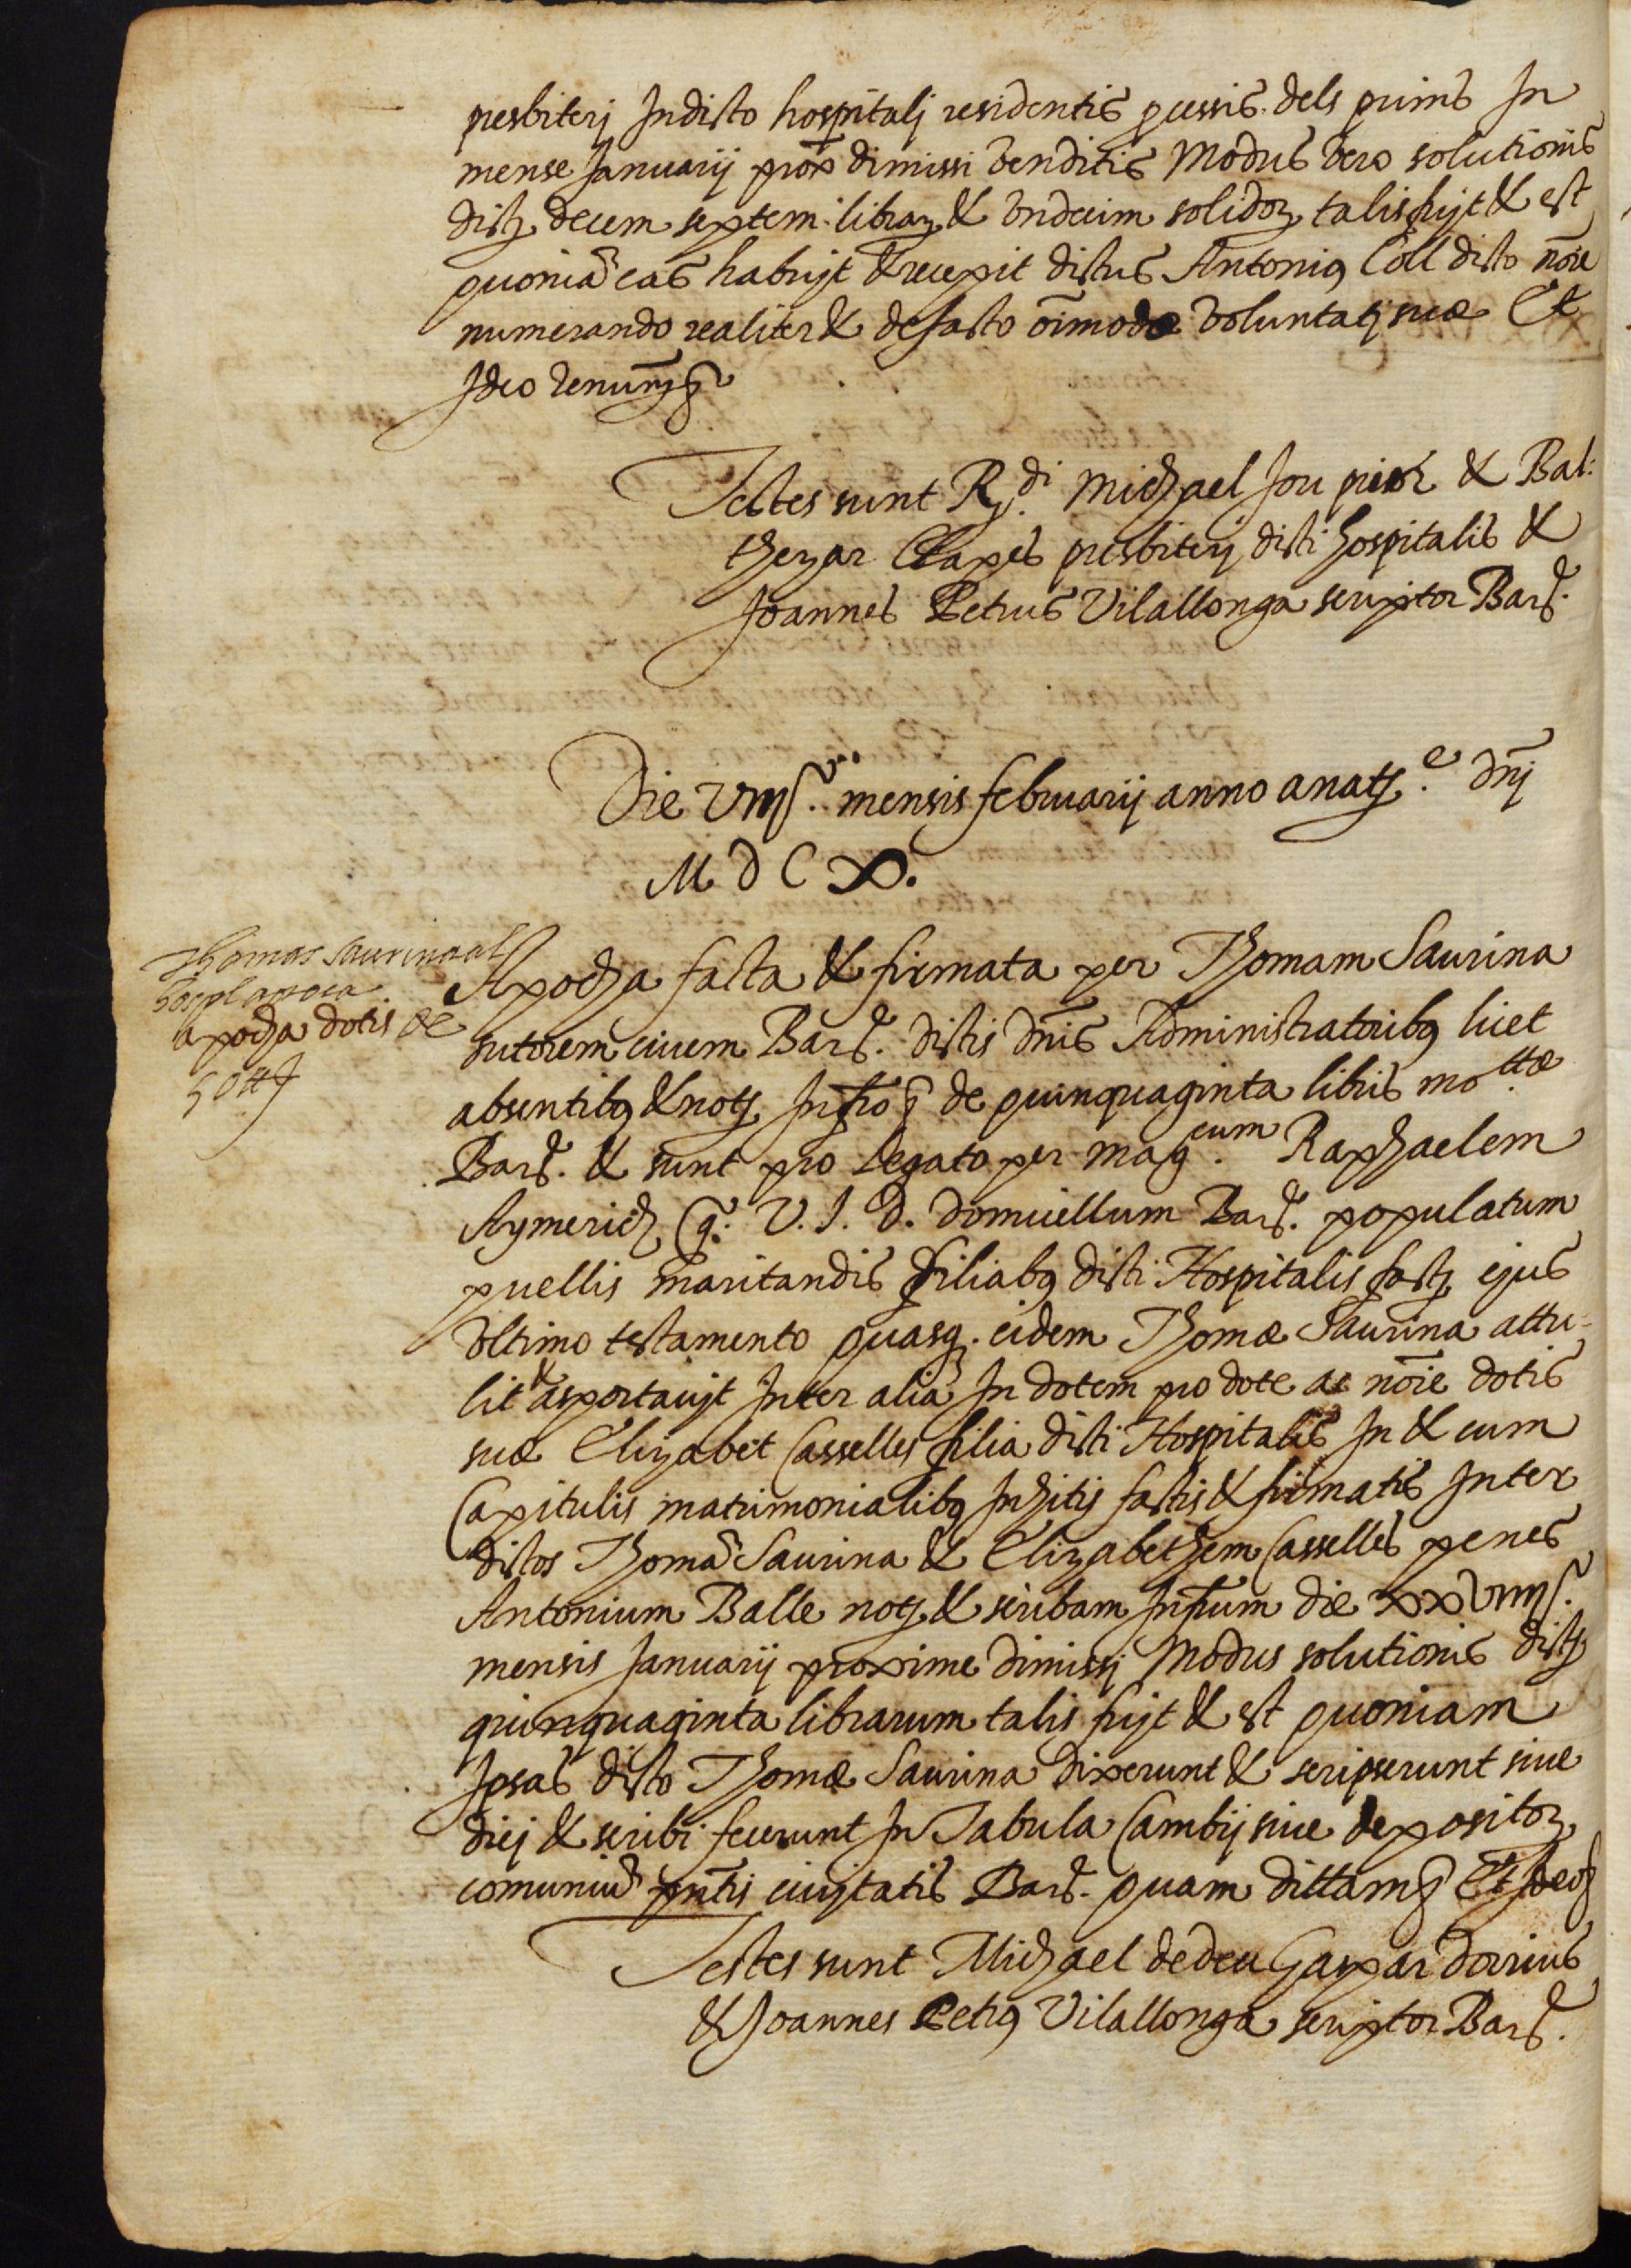 presbiterj In dicto hospitalj residentis precessis dels prims In
mense Januarij prox dimissi venditis Modus vero solutionis
dictȝ decem septem librarȝ & vndecim solidorȝ talis fuyt & est
quoniã eas habuyt & recepit dictus Antonius Coll dicto nõie
numerando realiter & de facto oĩmodæ voluntatj suæ Et
Ideo Renunȝ
Testes sunt Rȝ.di Michael Jou prior & Bal:
thezar Clapes presbiterj dicti hospitalis &
Joannes Petrus Vilallonga scriptor Barȝ.
Die viiij. mensis februarij anno a natȝ.e dnj
M D C X.
Thomas Saurina al
hospl apoca
apocha dotis de
50 ₶
Apocha facta & firmata per Thomam Saurina
sutorem ciuem Barȝ. dictis dnis Administratoribus licet
absentibus & notȝ Infro de quinquaginta libris motttæ
Barȝ. & sunt pro Legato per magcum. Raphaelem
Aymerich q̃. V. J. D. domicellum Barȝ. populatum
puellis maritandis filiabus dicti Hospitalis factȝ ejus
vltimo testamento quasq. eidem Thomæ Saurina attu-
lit & asportauyt Inter aliã In dotem pro dote ac nõie dotis
suæ Elizabet Casselles filia dicti Hospitalis In & cum
Capitulis matrimonialibus Inhitis factis & firmatis Inter
dictos Thomã Saurina & Elizabethem Casselles penes
Antonium Batlle notȝ & scribam Infrum die xxviiij.
mensis Januarij proxime dimissj Modus solutionis dictȝ
quinquaginta librarum talis fuyt & est quoniam
Ipsas dicto Thomæ Saurina dixerunt & scripserunt siue
dicj & scribi fecerunt In Tabula Cambij siue depositorȝ
comuniũ pñtis ciuytatis Barȝ. quam dictam Et Ideo
Testes sunt Michael de deu Gaspar Dorius
& Joannes Petrus Vilallonga scriptor Barȝ.